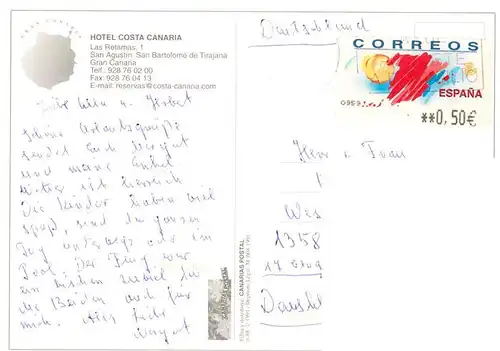 HOTEL COSTA CANARIA
Las Retamas, 1
San Agustín. San Bartolomé de Tirajana
Gran Canaria
Telf.: 928 76 02 00
Fax: 928 76 04 13
E-mail: reservas@costa-canaria.com
Liebe u. Herbert
schöne Urlaubsgrüße
sendet Euch Margot
und meine Enkel
Wetter ist herrlich
Die Kinder haben viel
Spaß, sind den ganzen
Tag unterwegs oder im
Pool. Der Flug war
ein bißchen zuviel für
die Beiden auch für
mich. Alles Liebe
Margot
Deutschland
CORREOS
ESPAÑA
**0,50€
Herr u. Frau
Wes
1358
CANARIAS POSTAL